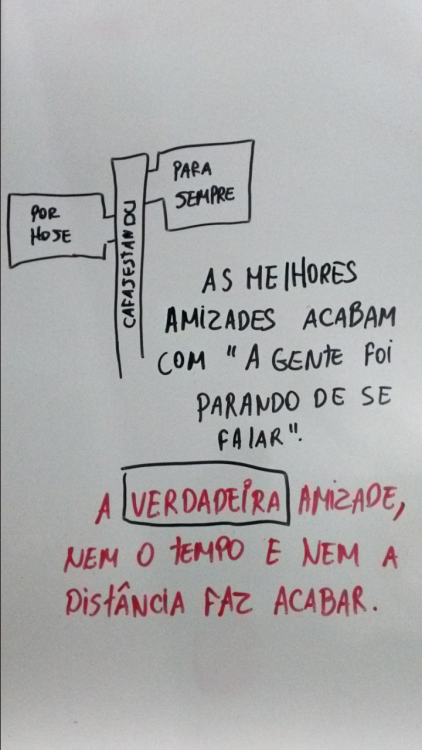 PARA
SEMPRE
POR
HOJE
CAFAJESTANDU
AS MELHORES
AMIZADES ACABAM
COM "A GENTE FOI
PARANDO DE SE
FALAR".
A VERDADEIRA AMIZADE,
NEM O TEMPO E NEM A
DISTÂNCIA FAZ ACABAR.